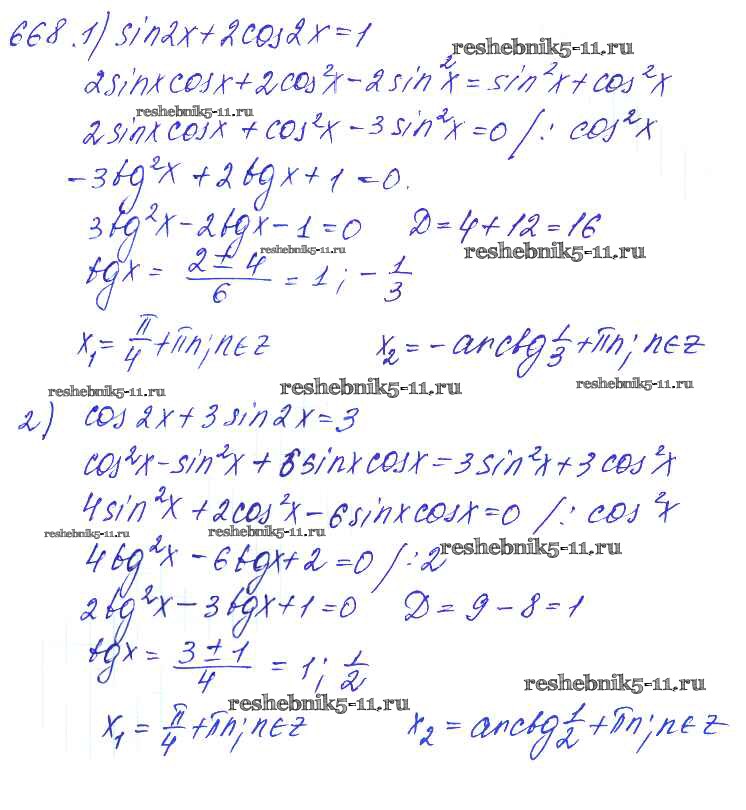 668.1) sin2x+2cos2x=1
reshebnik5-11.ru
2sinxcosx+2cos²x-2sin²x=sin²x+cos²x
reshebnik5-11.ru
2sinxcosx+cos²x-3sin²x=0 /: cos²x
-3tg²x+2tgx+1=0.
3tg²x-2tgx-1=0 D=4+12=16
reshebnik5-11.ru reshebnik5-11.ru
tgx = (2±4)/6 = 1; -1/3
x₁=π/4+πn; n∈z x₂=-arctg1/3+πn; n∈z
reshebnik5-11.ru reshebnik5-11.ru reshebnik5-11.ru
2) cos2x+3sin2x=3
cos²x-sin²x+6sinxcosx=3sin²x+3cos²x
4sin²x+2cos²x-6sinxcosx=0 /: cos²x
reshebnik5-11.ru reshebnik5-11.ru
4tg²x-6tgx+2=0 /:2
reshebnik5-11.ru
2tg²x-3tgx+1=0 D=9-8=1
tgx = (3±1)/4 = 1; 1/2
reshebnik5-11.ru reshebnik5-11.ru
x₁=π/4+πn; n∈z x₂=arctg1/2+πn; n∈z